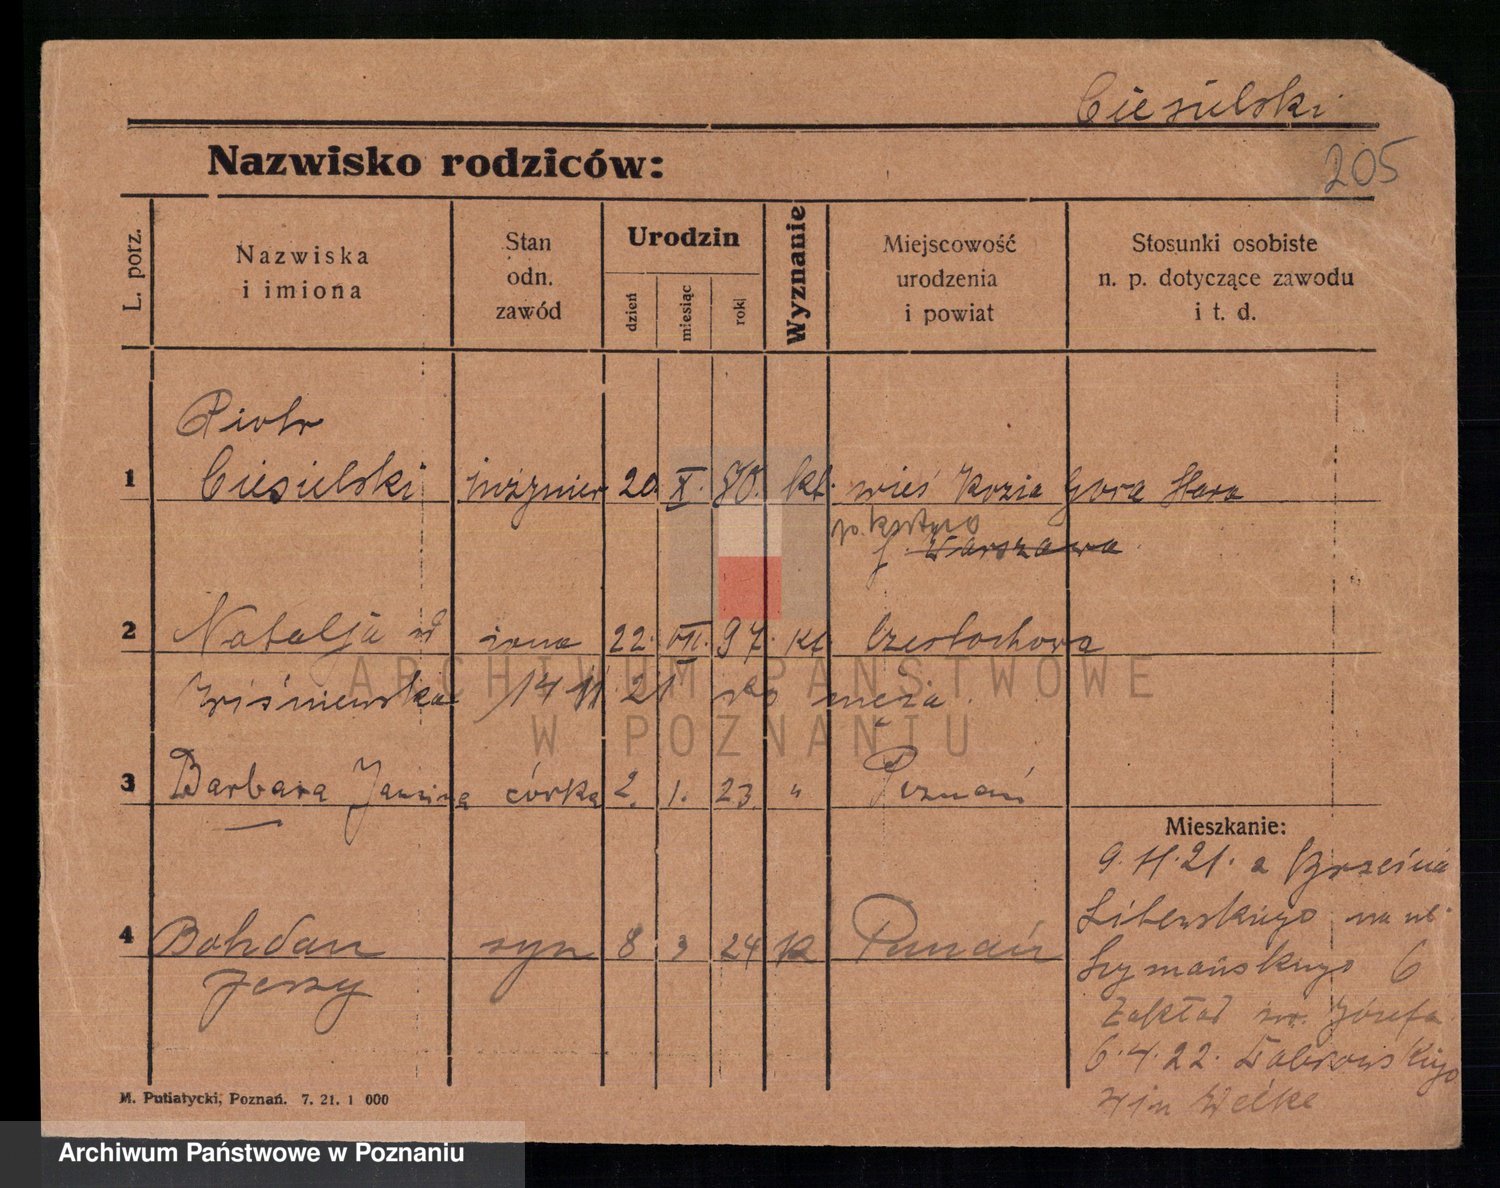 Ciesielski
205
Nazwisko rodziców:
L. porz.
Nazwiska
i imiona
Stan
odn.
zawód
Urodzin
dzień
miesiąc
rok
Wyznanie
Miejscowość
urodzenia
i powiat
Stosunki osobiste
n. p. dotyczące zawodu
i t. d.
Piotr
1 Ciesielski inżynier 20. X. 80. kt. wieś Kozia Gora Stara
Warszawa
2 Natalja żona 22. VII. 97. kt. Częstochowa
Wiśniewska 14 II 21 do męża.
3 Barbara Janina córka 2. 1. 23. " Poznań
Mieszkanie:
9. II. 21. z Brześcia
Litewskiego na ul.
4 Bohdan syn 8 3 24 k Poznań
Szymańskiego 6
Jerzy
Zakład św. Józefa
6. 4. 22. Dąbrowskiego
M. Putiatycki, Poznań. 7. 21. 1 000
ARCHIWUM PAŃSTWOWE
W POZNANIU
Archiwum Państwowe w Poznaniu